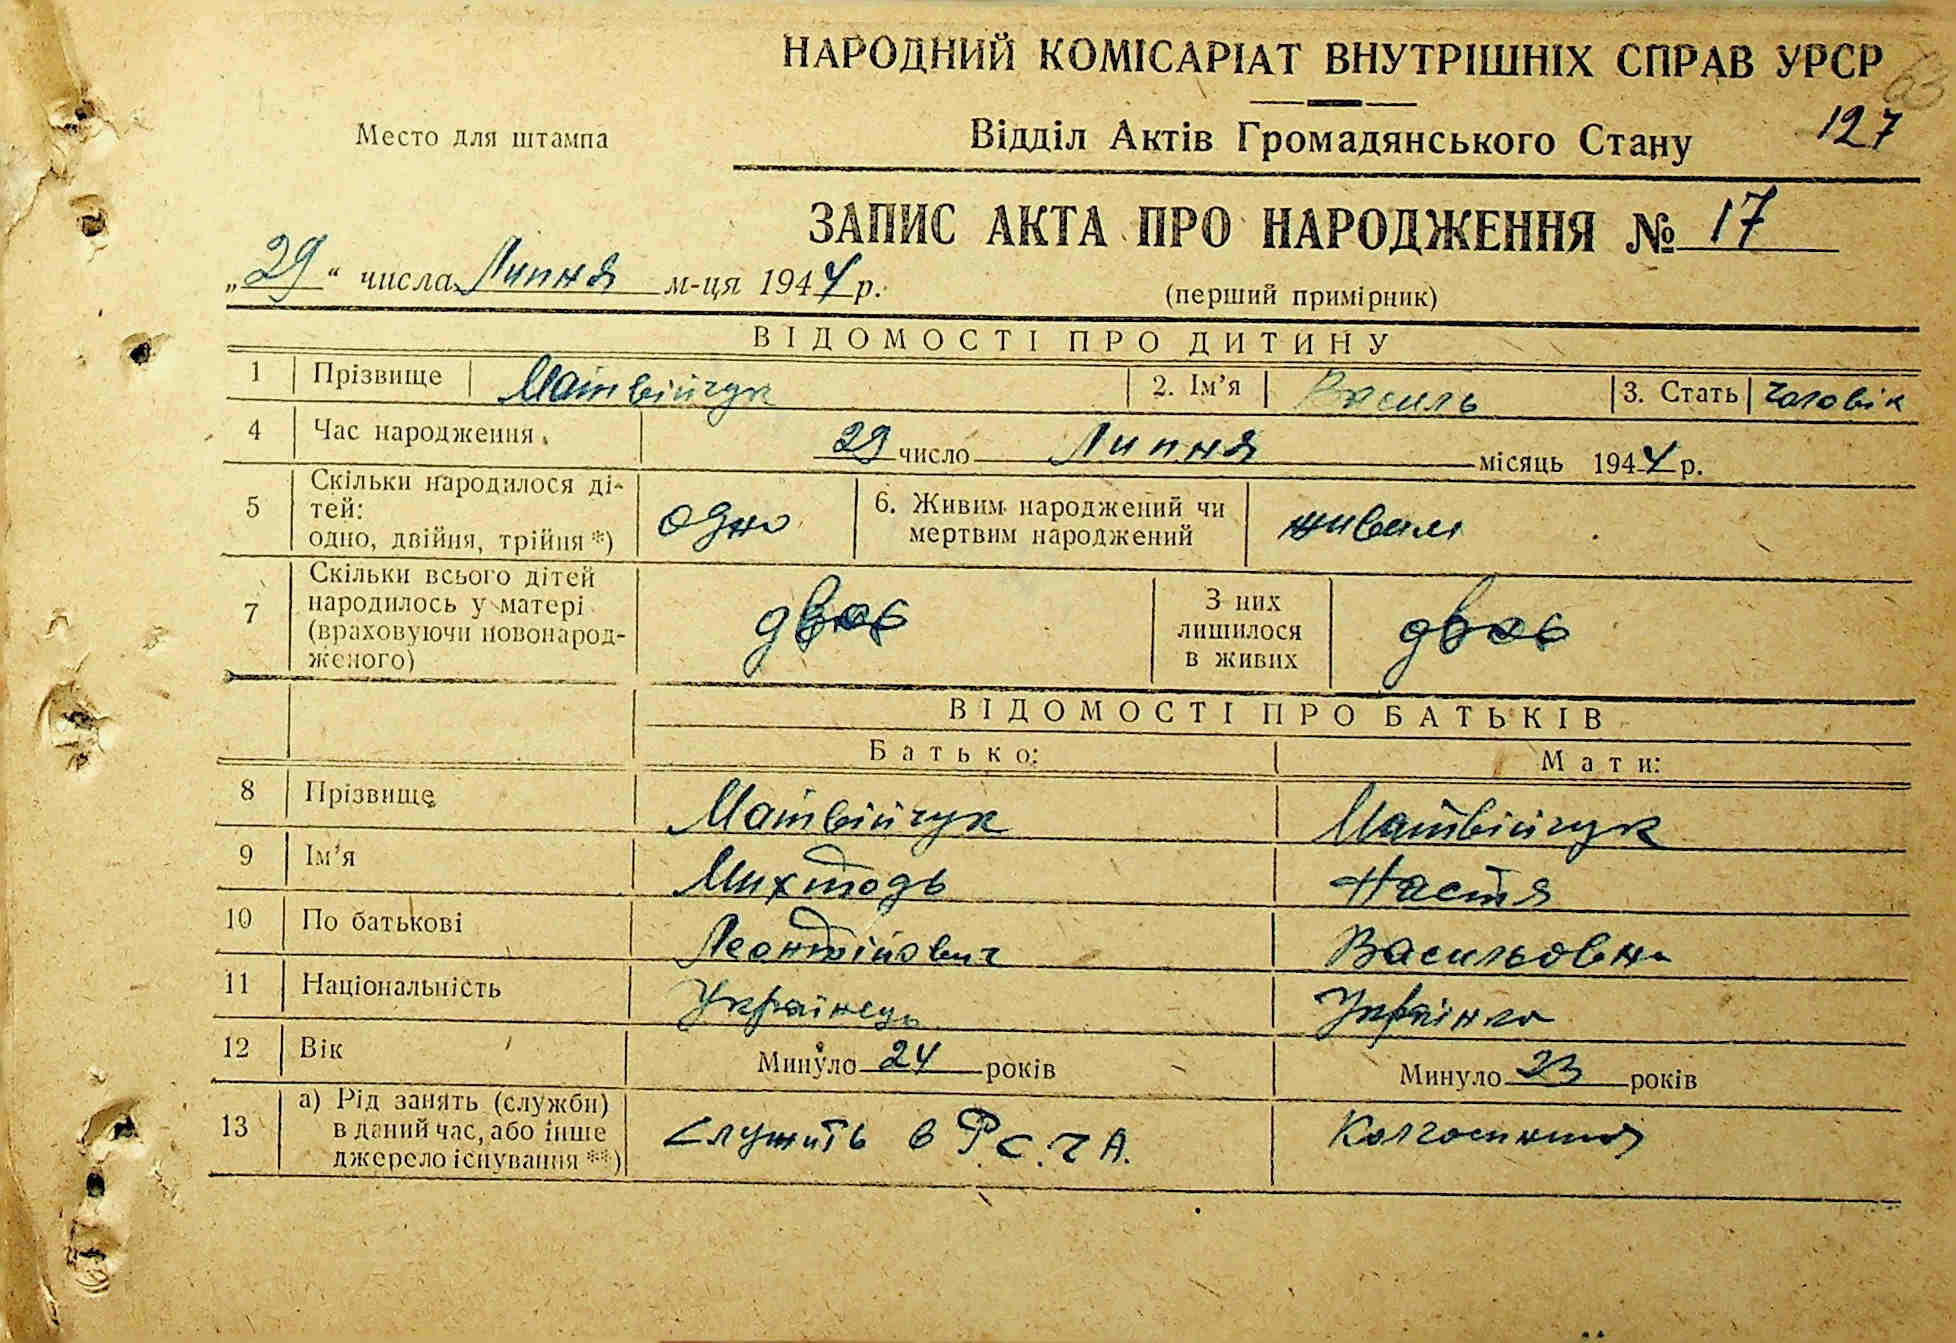 НАРОДНИЙ КОМІСАРІАТ ВНУТРІШНІХ СПРАВ УРСР
63
Место для штампа
Відділ Актів Громадянського Стану
127
ЗАПИС АКТА ПРО НАРОДЖЕННЯ № 17
„29“ числа Липня м-ця 1944 р.
(перший примірник)
ВІДОМОСТІ ПРО ДИТИНУ
1 Прізвище Матвійчук 2. Ім’я Василь 3. Стать чоловік
4 Час народження 29 число Липня місяць 1944 р.
5 Скільки народилося ді-
тей:
одно, двійня, трійня *) одно 6. Живим народжений чи
мертвим народжений живим
7 Скільки всього дітей
народилось у матері
(враховуючи новонарод-
женого) двоє З них
лишилося
в живих двоє
ВІДОМОСТІ ПРО БАТЬКІВ
Батько: Мати:
8 Прізвище Матвійчук Матвійчук
9 Ім’я Настя
10 По батькові Васильовна
11 Національність Українець Українка
12 Вік Минуло 24 років Минуло 23 років
13 а) Рід занять (служби)
в даний час, або інше
джерело існування **) Служить в Р.С.Ч А.